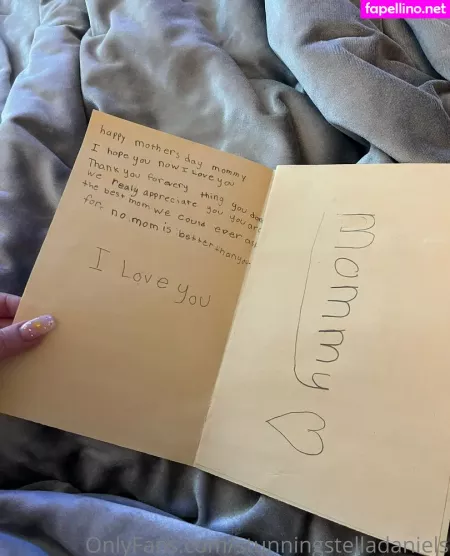 fapellino.net
happy mothers day mommy
I hope you now I love you
Thank you for every thing you done
we realy appreciate you you are
the best mom we could ever
for, no mom is better than you
I Love you
Mommy
OnlyFans.com/stunningstelladaniels